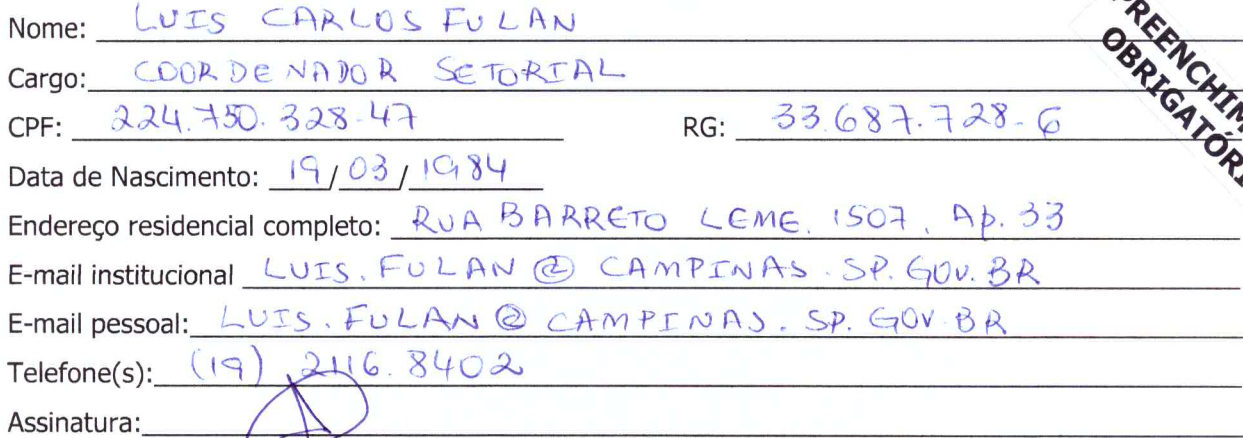 Nome: LUIS CARLOS FULAN
Cargo: COORDENADOR SETORIAL
CPF: 224.750.328-47 RG: 33.687.728-6
Data de Nascimento: 19/03/1984
Endereço residencial completo: RUA BARRETO LEME, 1507, Ap. 33
E-mail institucional LUIS.FULAN@CAMPINAS.SP.GOV.BR
E-mail pessoal: LUIS.FULAN@CAMPINAS.SP.GOV.BR
Telefone(s): (19) 2116.8402
Assinatura: